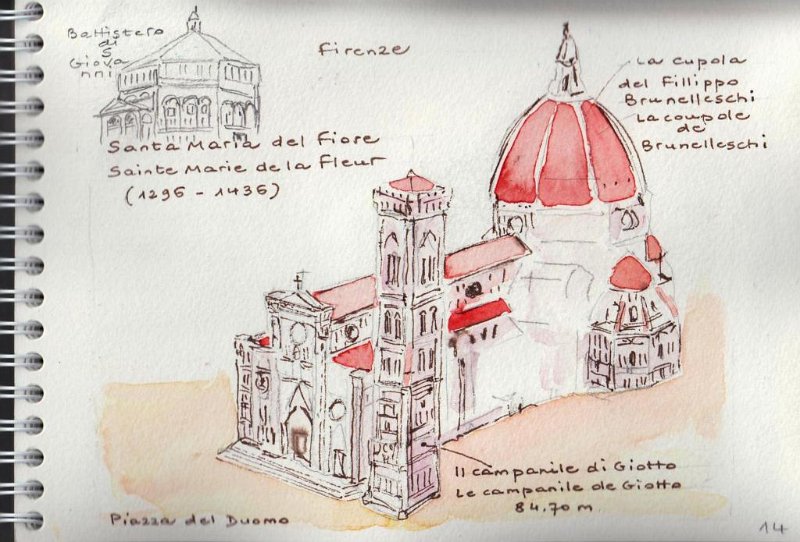 Battistero
di
S
Giova
nni
Firenze
Santa Maria del Fiore
Sainte Marie de la Fleur
(1296 - 1436)
La cupola
del Fillippo
Brunelleschi
La coupole
de
Brunelleschi
Il campanile di Giotto
Le campanile de Giotto
84.70 m
Piazza del Duomo
14